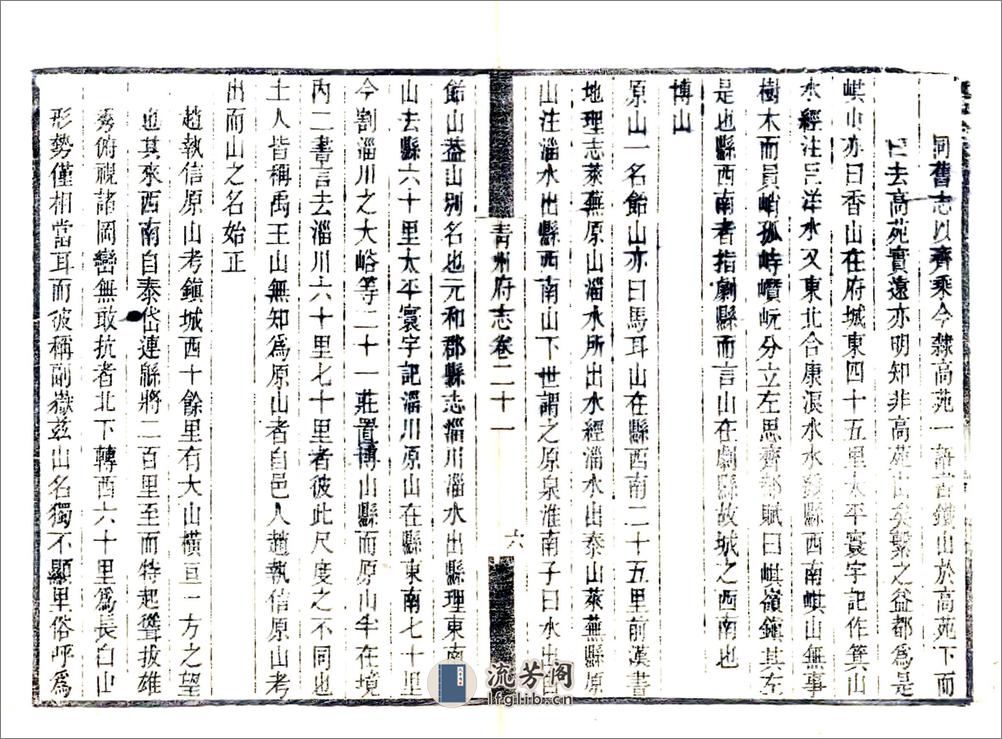 同舊志以齊乘今隸高苑一語書鐵山於高苑下而
去高苑實遠亦明知非高苑山矣繫之益都為是
㟓山亦曰香山在府城東四十五里太平寰宇記作箕山
水經注巨洋水又東北合康浪水水發縣西南㟓山無事
樹木而員峭孤峙巑岏分立左思齊都賦曰㟓嶺鎮其左
是也縣西南者指劇縣而言山在劇縣故城之西南也
博山
原山一名飴山亦曰馬耳山在縣西南二十五里前漢書
地理志萊蕪原山淄水所出水經淄水出泰山萊蕪縣原
山注淄水出縣西南山下世謂之原泉淮南子曰水出自
青州府志卷二十一
六
飴山葢山別名也元和郡縣志淄川淄水出縣理東南
山去縣六十里太平寰宇記淄川原山在縣東南七十里
今割淄川之大峪等二十一莊置博山縣而原山半在境
內二書言去淄川六十里七十里者彼此尺度之不同也
土人皆稱禹王山無知為原山者自邑人趙執信原山考
出而山之名始正
趙執信原山考鎮城西十餘里有大山橫亘一方之望
也其來西南自泰岱連緜將二百里至而特起聳拔雄
秀俯視諸岡巒無敢抗者北下轉西六十里為長白山
形勢僅相當耳而彼稱副嶽茲山名獨不顯里俗呼為
流芳阁
lfglib.cn